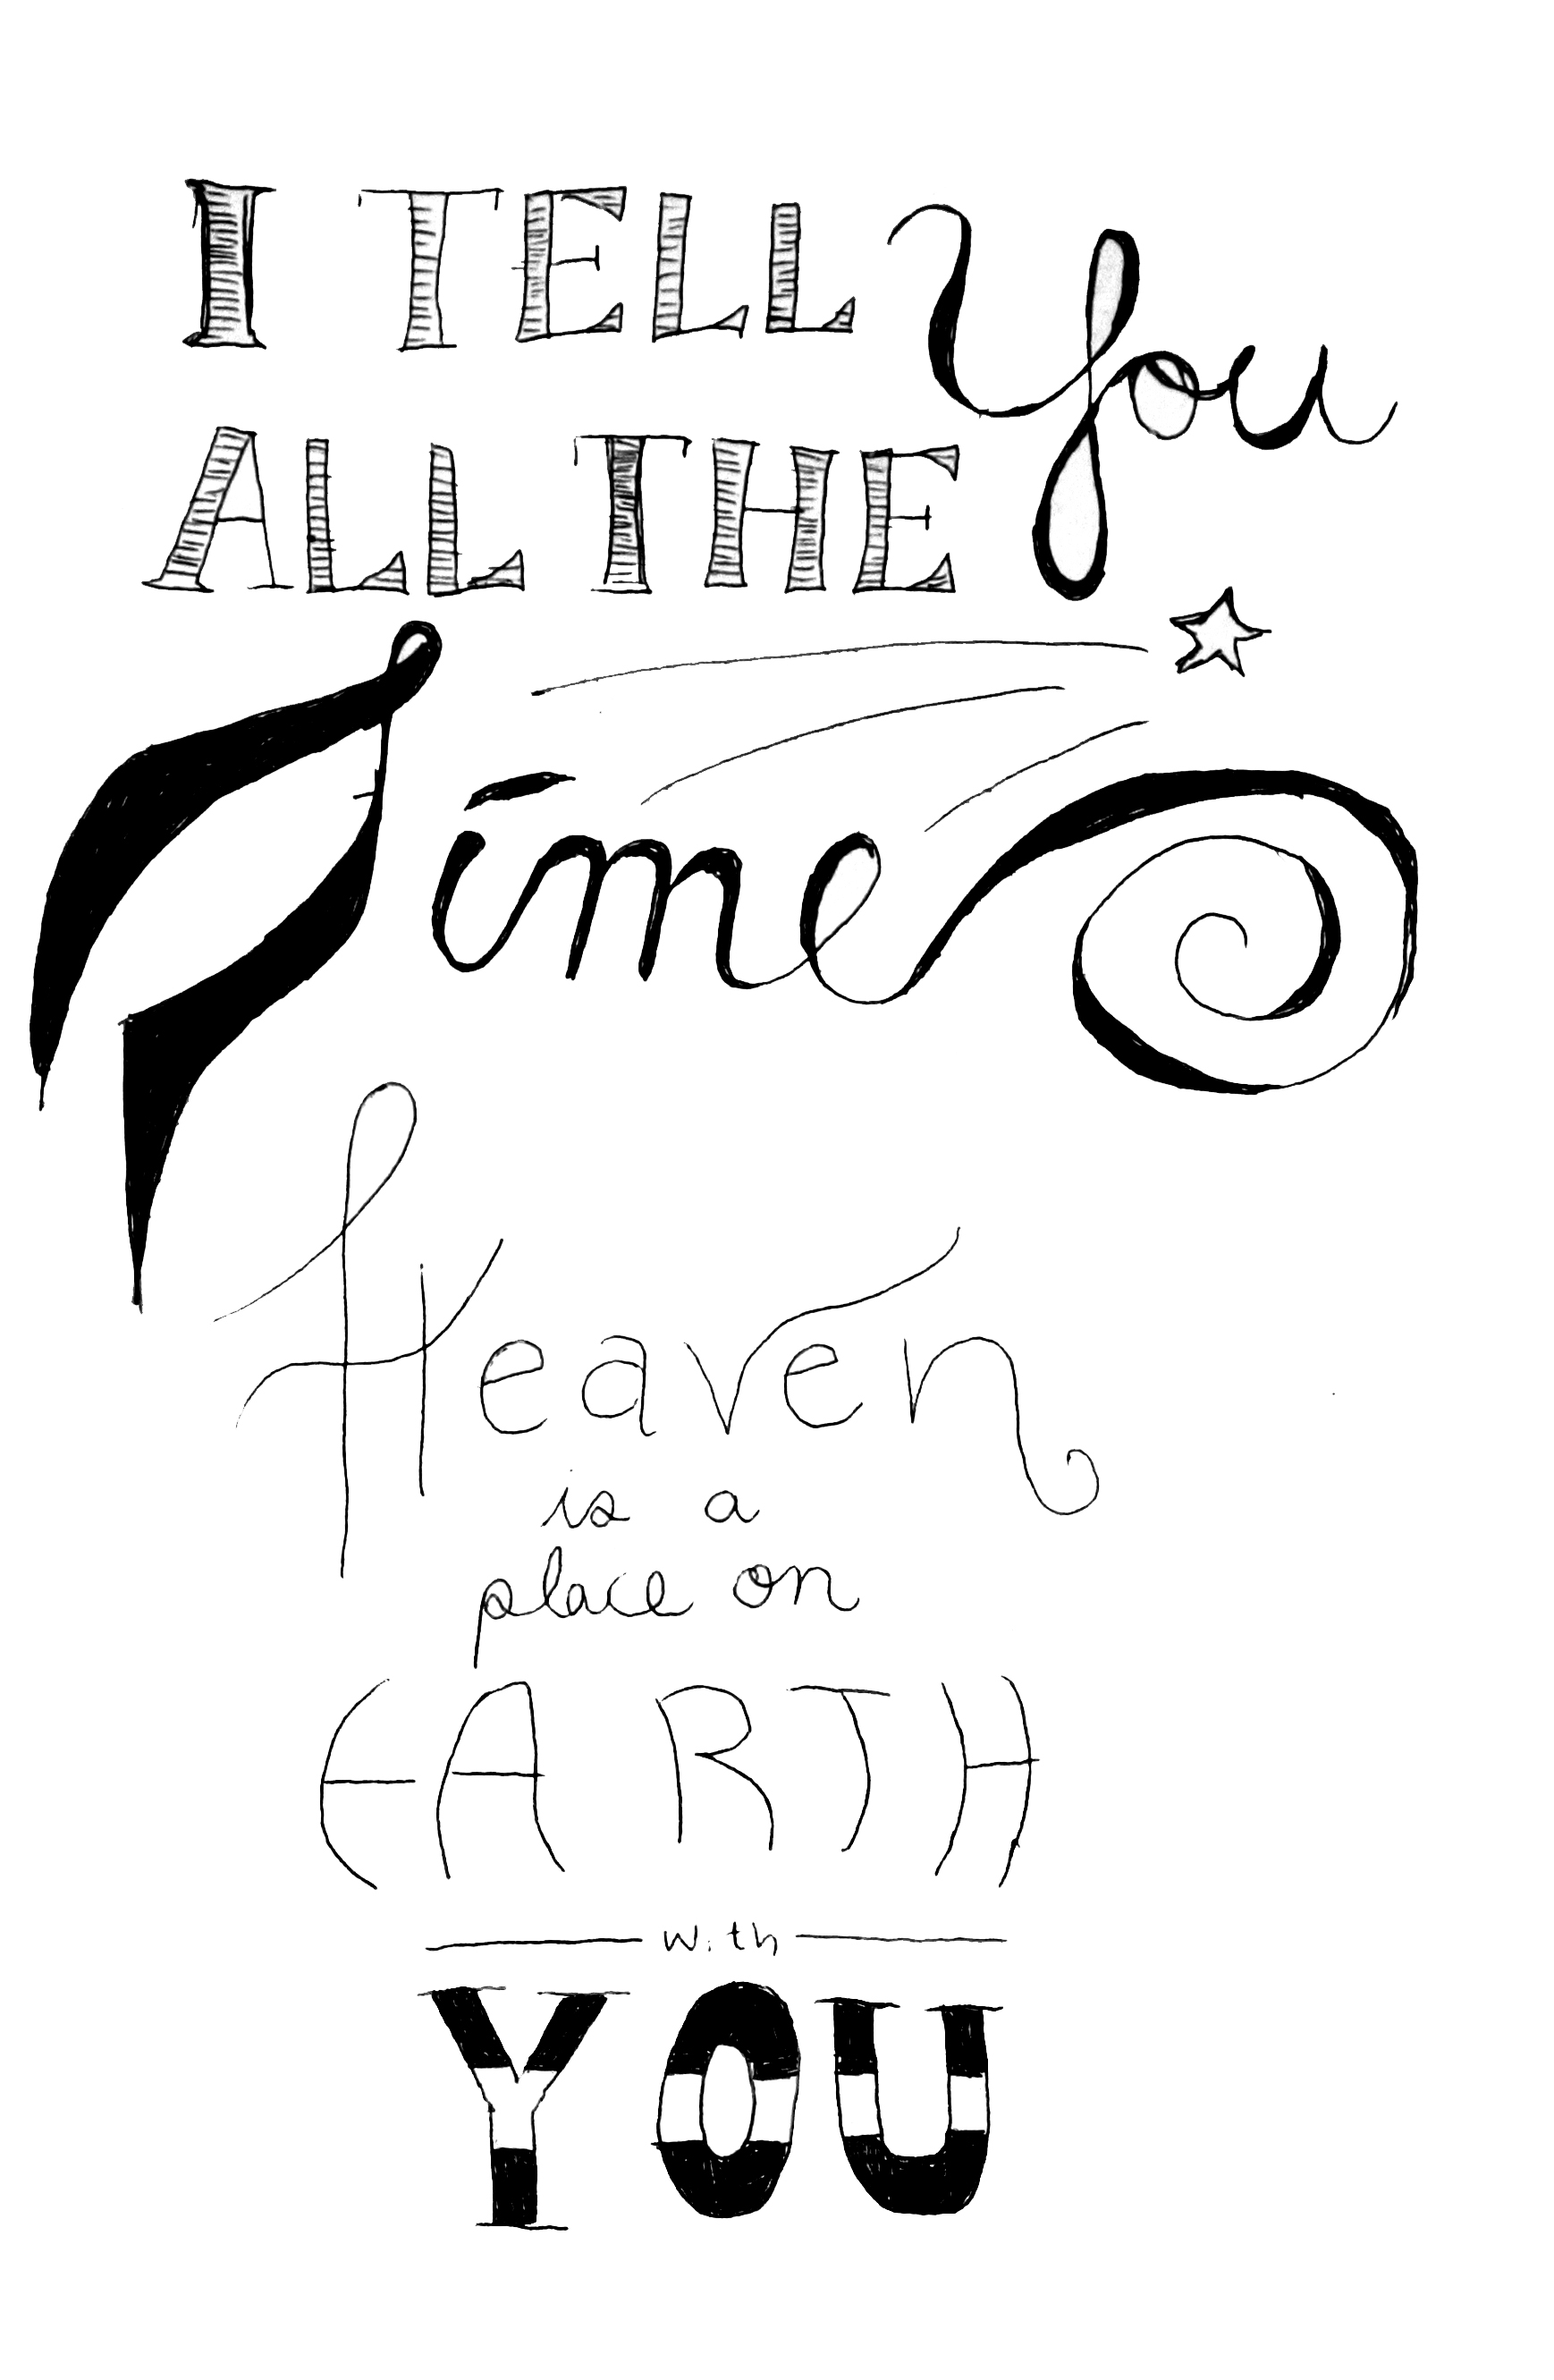 I TELL You
ALL THE
Time
Heaven
is a
place on
EARTH
with
YOU